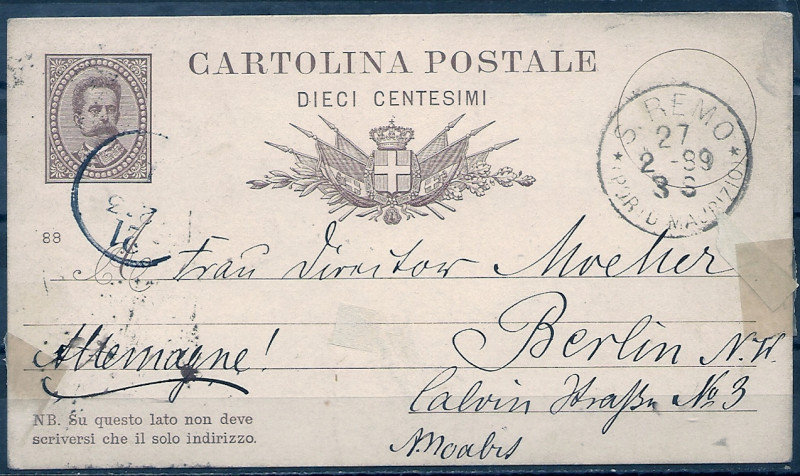 CARTOLINA POSTALE
DIECI CENTESIMI
S. REMO
27
2 -89
8 S
(PORTO MAURIZIO)
31
88
Frau Director Moeller
Allemagne!
Berlin N.W.
Calvin Straße No 3
Moabit
NB. Su questo lato non deve
scriversi che il solo indirizzo.